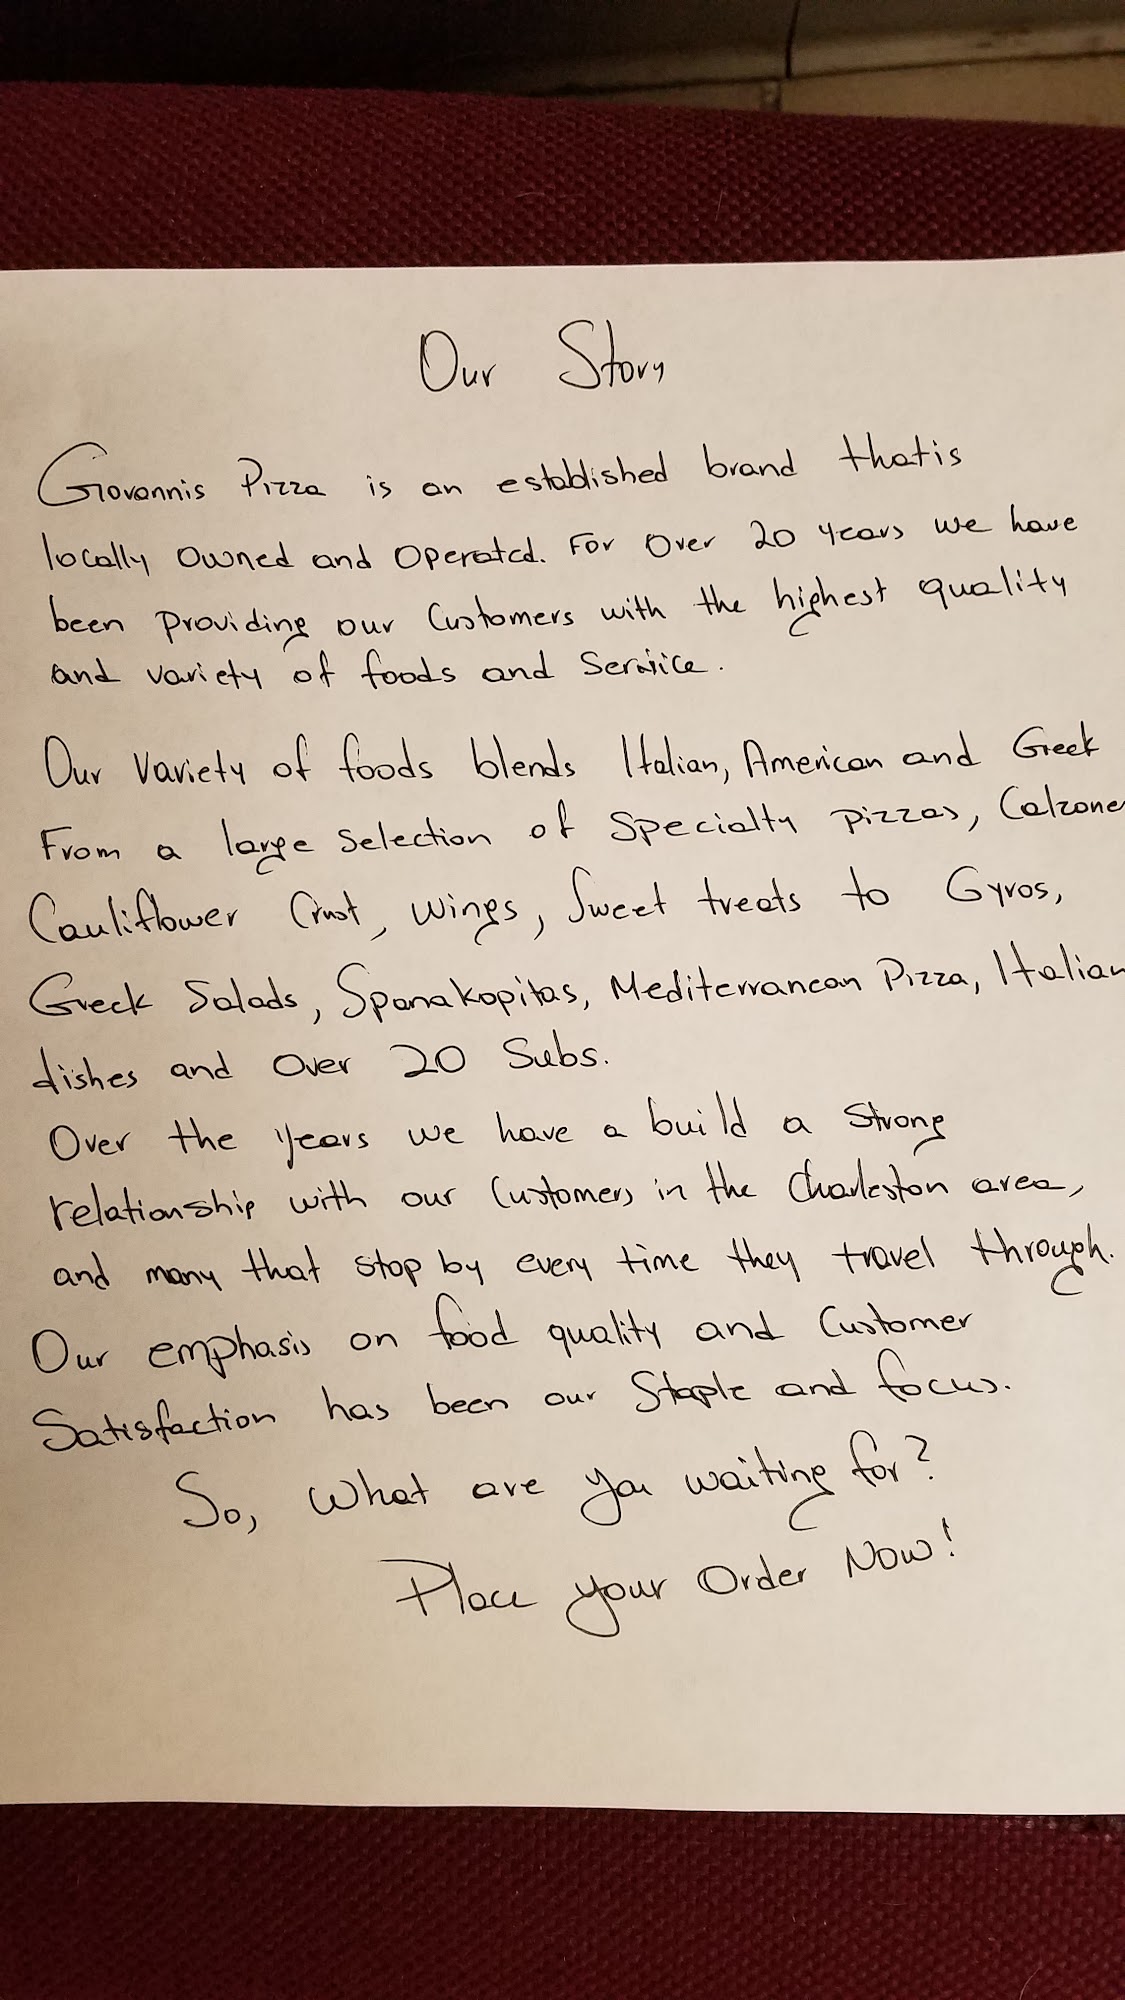 Our Story
Giovannis Pizza is an established brand thatis
locally Owned and Operated. For Over 20 years we have
been Providing our Customers with the highest quality
and variety of foods and Service.
Our Variety of foods blends Italian, American and Greek
From a large Selection of Specialty pizzas, Calzone
Cauliflower Crust, Wings, Sweet treats to Gyros,
Greek Salads, Spanakopitas, Mediterranean Pizza, Italian
dishes and Over 20 Subs.
Over the years we have a build a Strong
relationship with our Customers in the Charleston area,
and many that stop by every time they travel through.
Our emphasis on food quality and Customer
Satisfaction has been our Staple and focus.
So, What are you waiting for?
Place your Order Now!